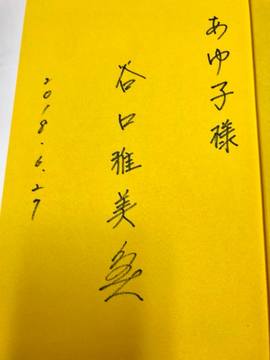 あゆ子様
谷口雅美
2018.6.27